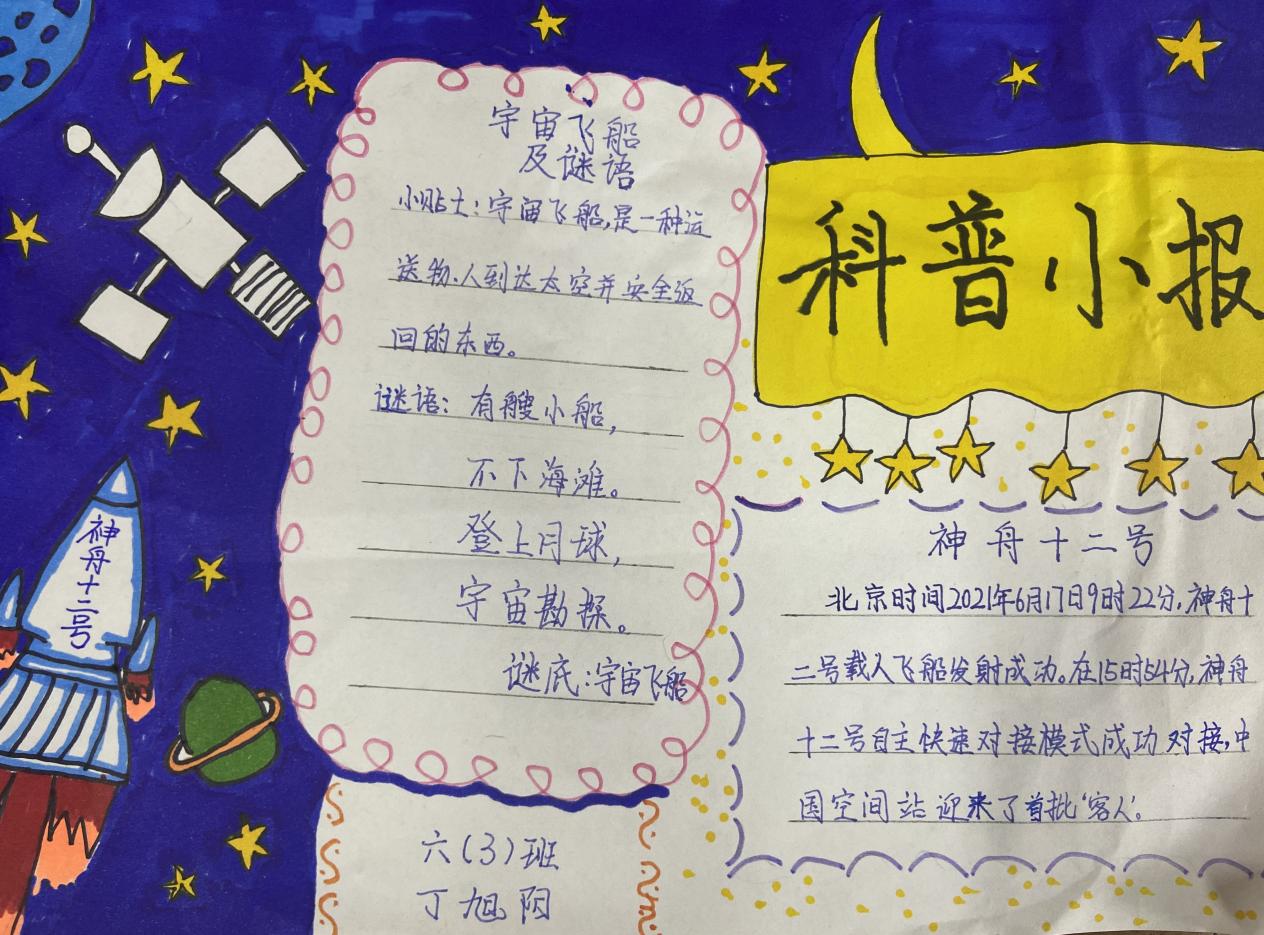 科普小报
宇宙飞船
及谜语
小贴士:宇宙飞船,是一种运
送物、人到达太空并安全返
回的东西。
谜语:有艘小船,
不下海滩。
登上月球,
宇宙勘探。
谜底:宇宙飞船
神舟十二号
神舟十二号
北京时间2021年6月17日9时22分,神舟十
二号载人飞船发射成功。在15时54分,神舟
十二号自主快速对接模式成功对接,中
国空间站迎来了首批‘客人’.
六(3)班
丁旭阳